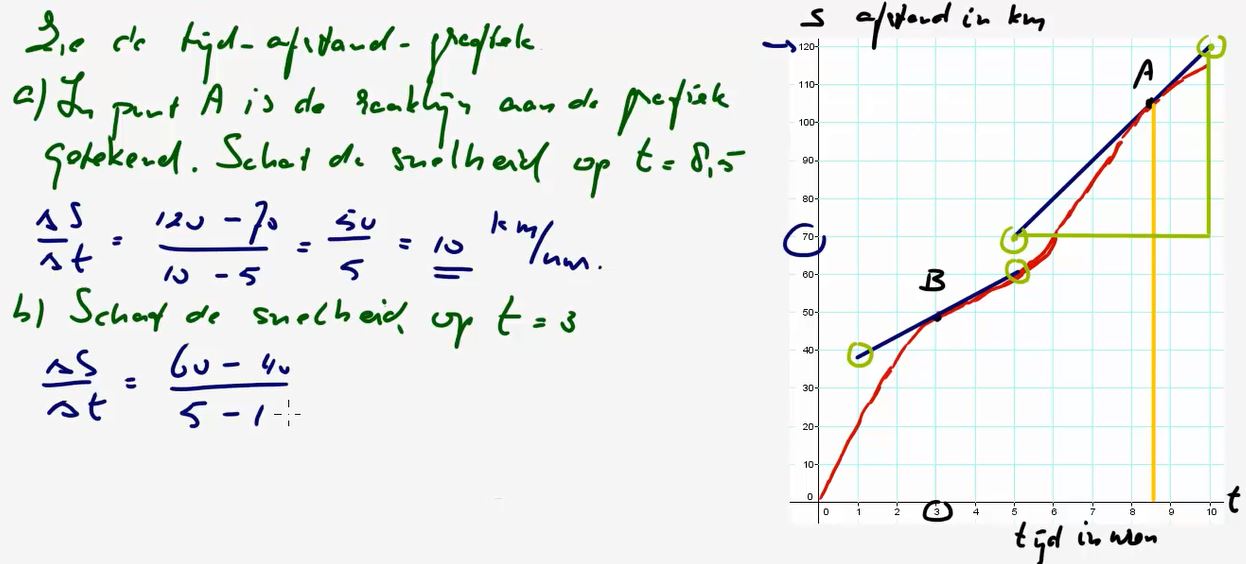 Zie de tijd-afstand-grafiek
a) In punt A is de raaklijn aan de grafiek
getekend. Schat de snelheid op t = 8,5
ΔS/Δt = (120 - 70)/(10 - 5) = 50/5 = 10 km/uur.
b) Schat de snelheid op t = 3
ΔS/Δt = (60 - 40)/(5 - 1
S afstand in km
120
110
100
90
80
70
60
50
40
30
20
10
0
A
B
0 1 2 3 4 5 6 7 8 9 10 t
tijd in uren